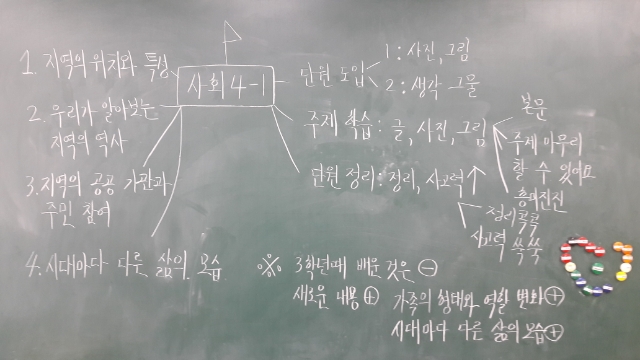 1. 지역의 위치와 특성
2. 우리가 알아보는
지역의 역사
3. 지역의 공공 기관과
주민 참여
4. 시대마다 다른 삶의 모습
사회 4-1
단원 도입
1 : 사진, 그림
2 : 생각 그물
주제 학습 : 글, 사진, 그림
단원 정리 : 정리, 사고력
본문
주제 마무리
할 수 있어요
흥미진진
정리 콕콕
사고력 쑥쑥
※ 3학년때 배운 것은 ⊖
새로운 내용 ⊕
가족의 형태와 역할 변화 ⊕
시대마다 다른 삶의 모습 ⊕